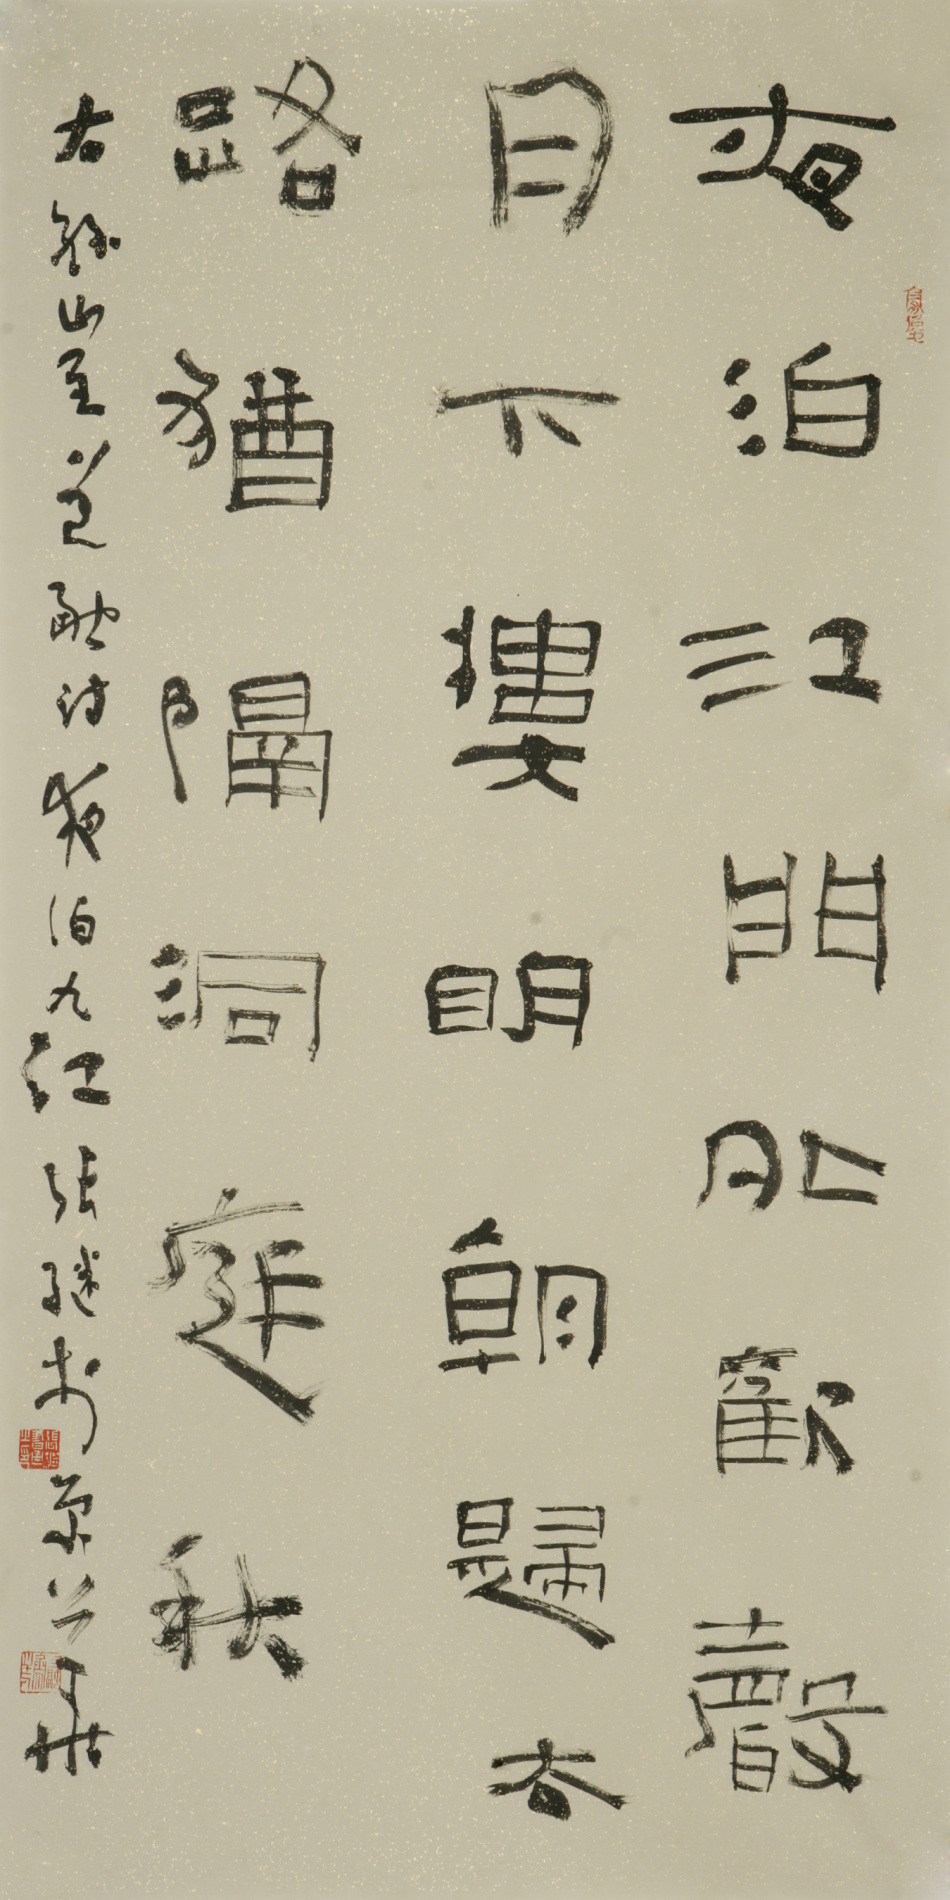 夜泊江門外歡聲
月下樓明朝歸去
路猶隔洞庭秋
右錄山屋道融詩夜泊九江張繼於京